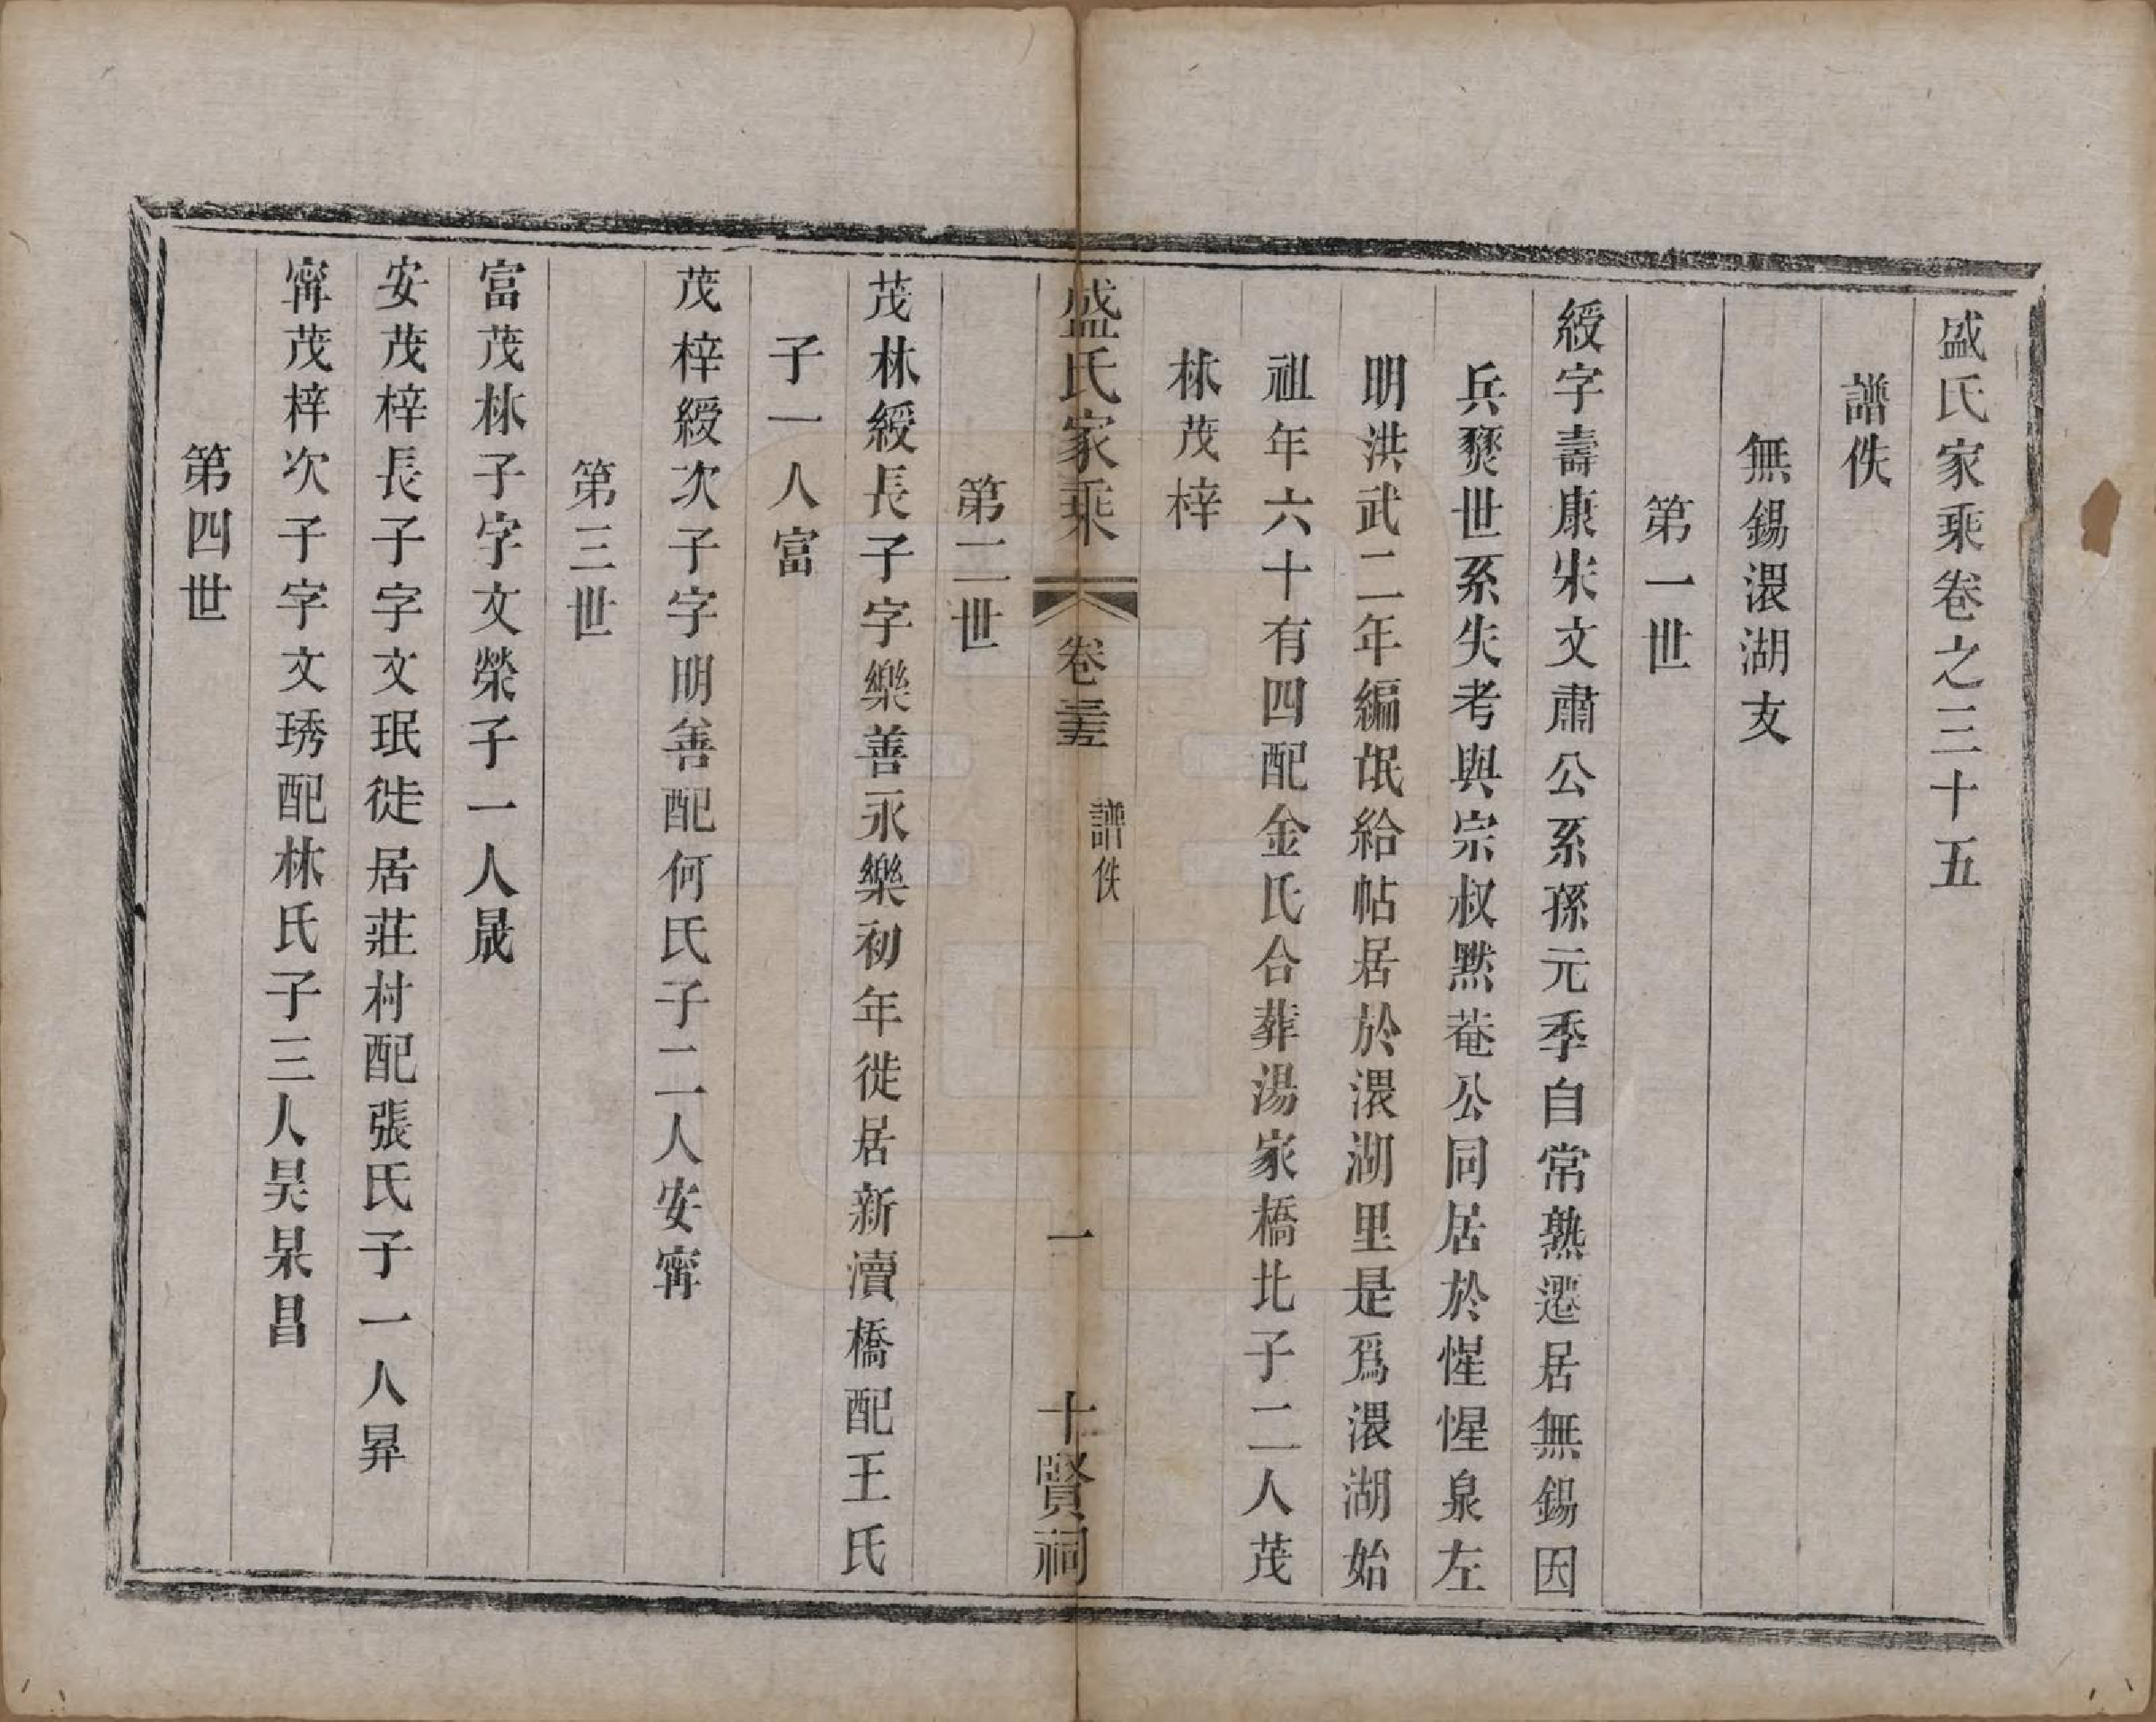 盛氏家乘卷之三十五
譜佚
無錫㴫湖支
第一世
綬字壽康宋文肅公系孫元季自常熟遷居無錫因
兵燹世系失考與宗叔默菴公同居於惺惺泉左
明洪武二年編氓給帖居於㴫湖里是爲㴫湖始
祖年六十有四配金氏合葬湯家橋北子二人茂
林茂梓
盛氏家乘
卷三十五
譜佚
一
十賢祠
第二世
茂林綬長子字樂善永樂初年徙居新瀆橋配王氏
子一人富
茂梓綬次子字明善配何氏子二人安寗
第三世
富茂林子字文榮子一人晟
安茂梓長子字文珉徙居莊村配張氏子一人昇
寗茂梓次子字文琇配林氏子三人昊杲昌
第四世